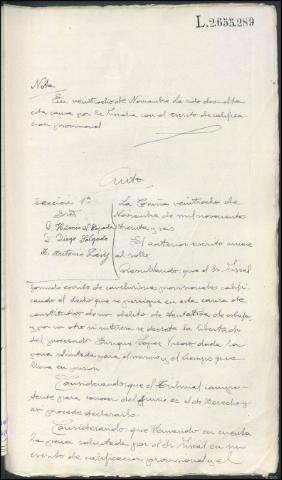 L.2.655.289
Nota
En veintiocho de Noviembre ha sido devuelta
esta causa por la Fiscalía con el escrito de califica-
ción provisional
Auto
Sección 1ª
Sres
D.
D. Diego Salgado
D. Antonio
La Coruña veintiocho de
Noviembre de mil novecientos
treinta y seis
El anterior escrito únase
al rollo
Resultando que el Sr. Fiscal
formuló escrito de conclusiones provisionales califi-
cando el hecho que se persigue en esta causa de
constitutivo de un delito de tentativa de
y por un otro sí interesa se decrete la libertad
del procesado Enrique López dada la
pena solicitada para el mismo y el tiempo que
lleva en prisión
Considerando que el Tribunal compe-
tente para conocer del juicio es el de Derecho y
así procede declararlo
Considerando que teniendo en cuenta
la pena solicitada por el Sr. Fiscal en su
escrito de calificación provisional y el